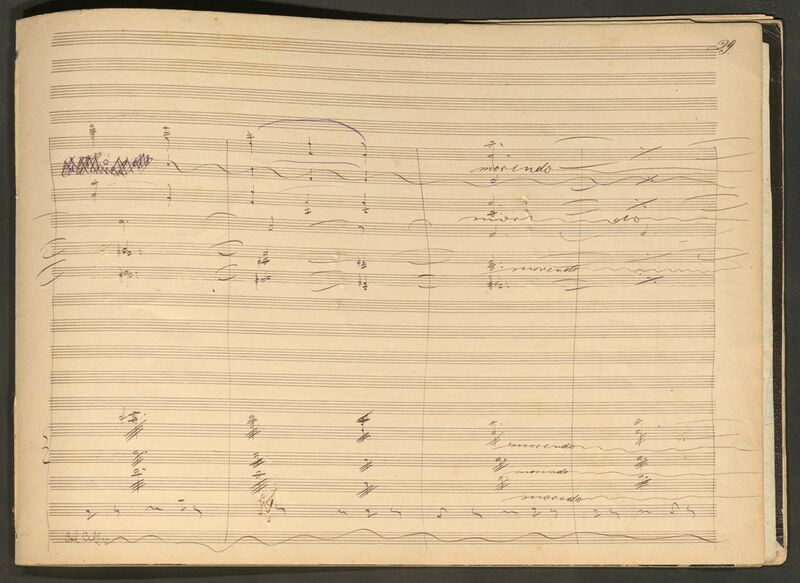 29
morendo
mor do
morendo
morendo
morendo
morendo
Col Cello